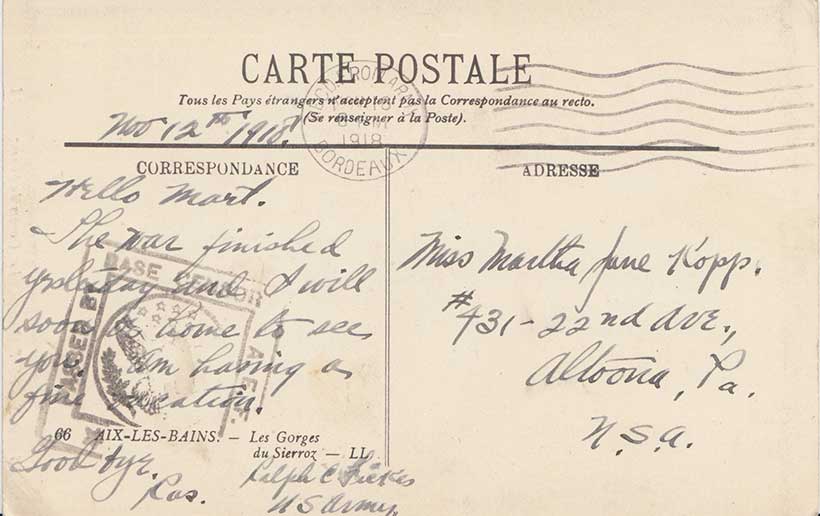 CARTE POSTALE
Tous les Pays étrangers n'acceptent pas la Correspondance au recto.
(Se renseigner à la Poste).
Nov 12th 1918.
1918
BORDEAUX
CORRESPONDANCE
ADRESSE
Hello Mart.
The war finished
yesterday and I will
soon be home to see
you. Im having a
fine vacation.
Good bye.
Ras.
Ralph C Fickes
US Army
BASE CENSOR
A.E.F.
66 AIX-LES-BAINS. — Les Gorges
du Sierroz — LL
Miss Martha Jane Kopp.
#431-22nd Ave.,
Altoona, Pa.
U.S.A.